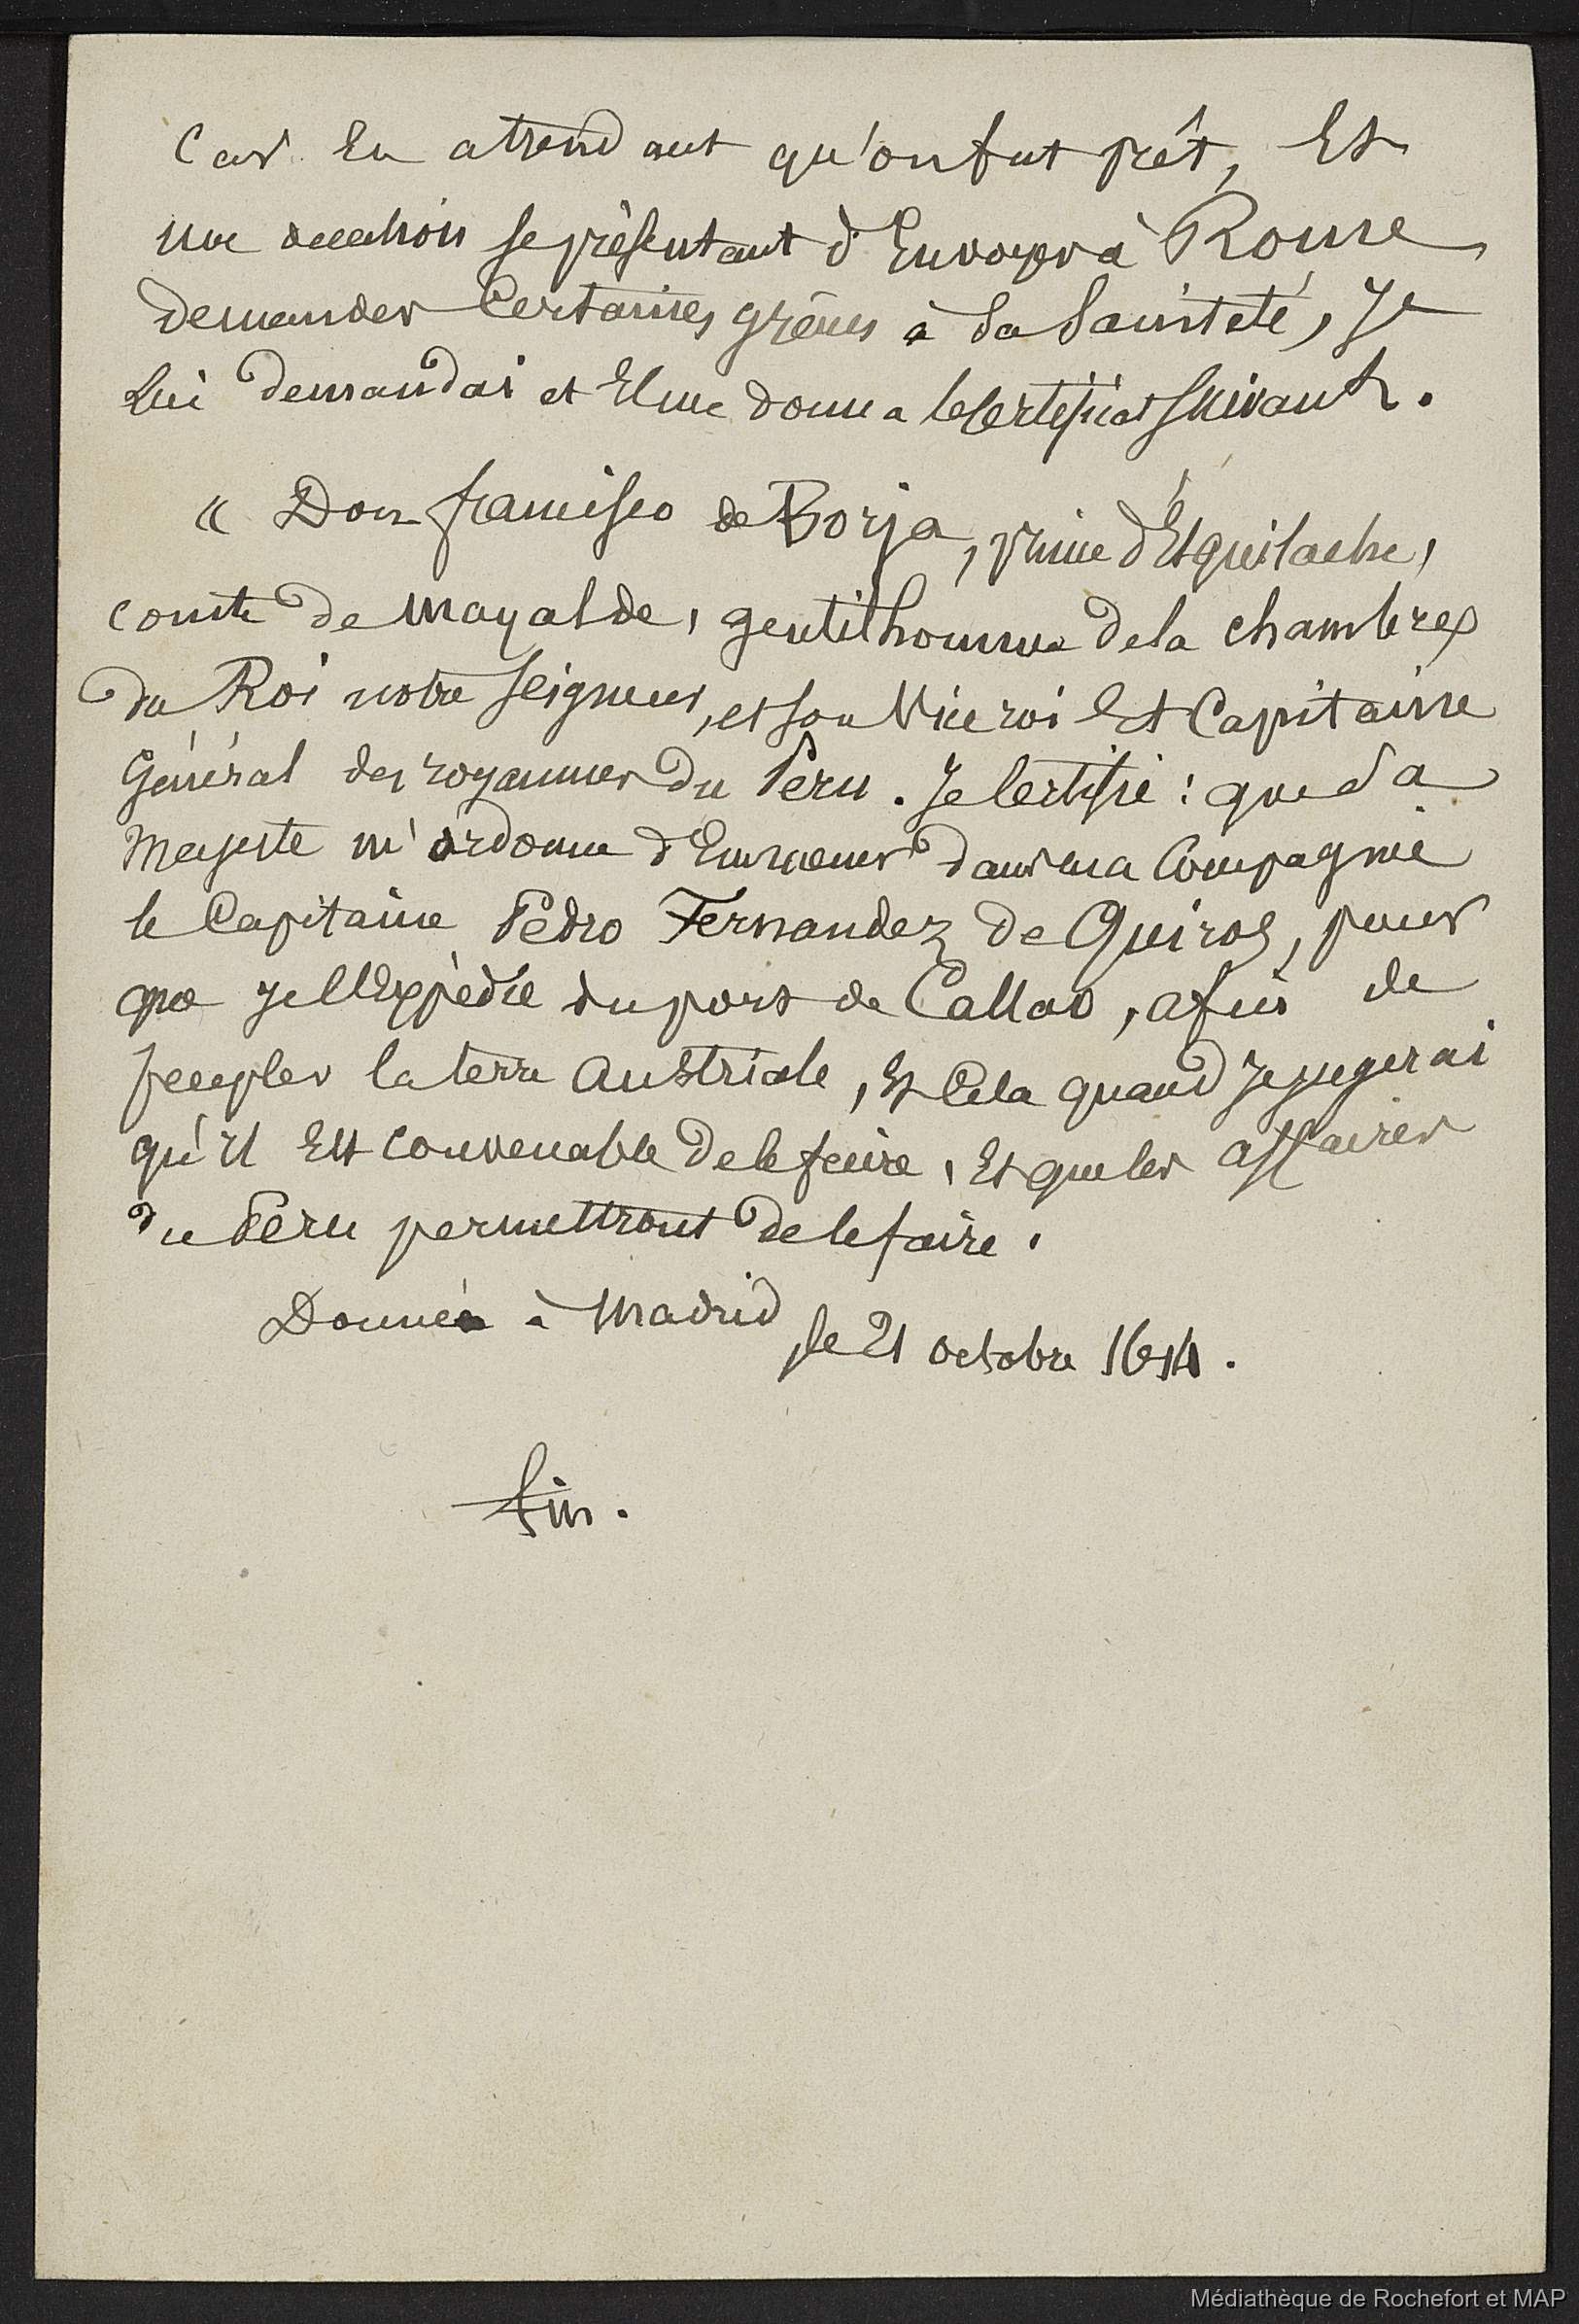 Car en attendant qu'on fut prêt, Et
une occasion se présentant d'Envoyer à Rome
demander Certaines grâces à Sa Sainteté, Je
lui demandai et Il me donna le Certificat suivant.
« Don francisco de Borja, prince d'Esquilache,
comte de Mayalde, gentilhomme de la chambre
du Roi notre seigneur, et son Vice roi Et Capitaine
Général des royaumes du Peru. Je Certifie : que Sa
Majeste m'ordonne d'Emmener dans ma Compagnie
le Capitaine Pedro Fernandez de Quiros, pour
que je l'Expédie du port de Callao, afin de
peupler la terre Australe, Et Cela quand Je jugerai
qu'il Est convenable de le faire, Et que les affaires
du Peru permettront de le faire.
Donnée à Madrid, le 21 octobre 1614.
fin.
Médiathèque de Rochefort et MAP